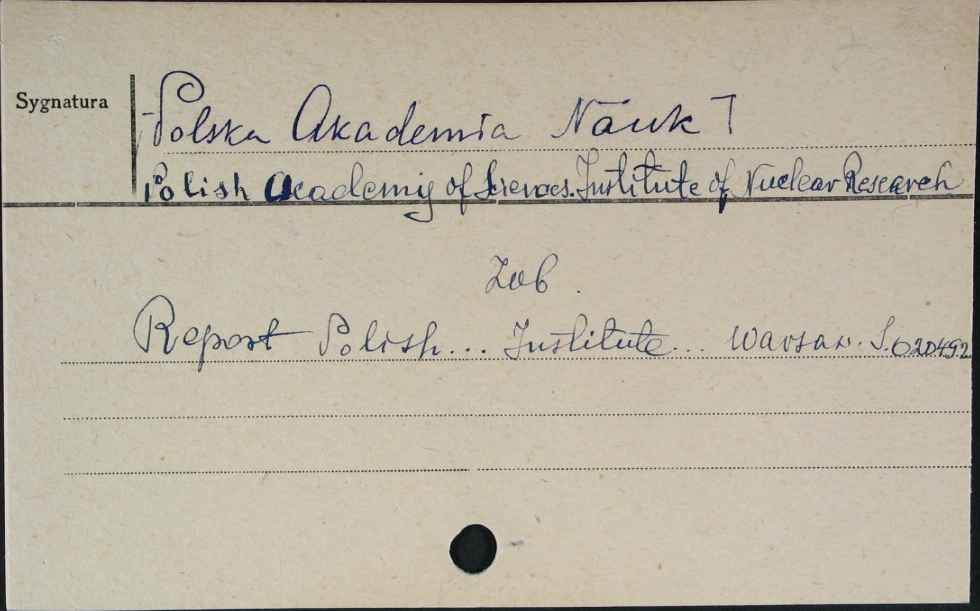 Sygnatura
Polska Akademia Nauk
Polish Academy of Sciences. Institute of Nuclear Research
Zob.
Report Polish... Institute... Warsaw. S. 020492